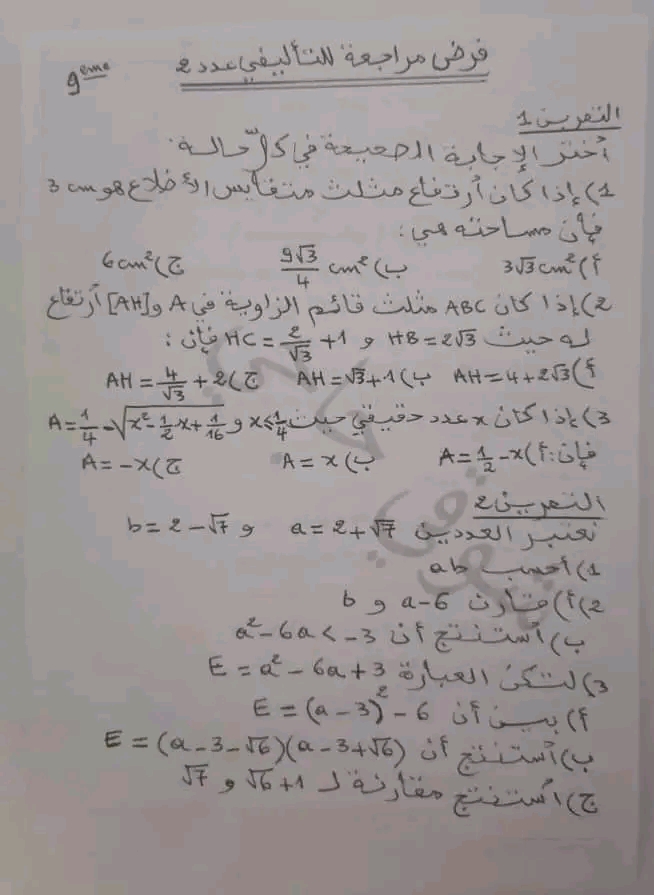 فرض مراجعة للتأليفي عدد 2
9ème
التمرين 1
أختر الإجابة الصحيحة في كلّ حالة:
1) إذا كان أرتفاع مثلث متقايس الأضلاع هو 3 cm
فإن مساحته هي:
أ) 3√3 cm² ب) 9√3/4 cm² ج) 6 cm²
2) إذا كان ABC مثلث قائم الزاوية في A و [AH] أرتفاع
له حيث HB = 2√3 و HC = 2/√3 + 1 فإن:
أ) AH = 4 + 2√3 ب) AH = √3 + 1 ج) AH = 4/√3 + 2
3) إذا كان x عدد حقيقي حيث x ≤ 1/4 و A = 1/4 - √(x² - 1/2 x + 1/16)
فإن: أ) A = 1/2 - x ب) A = x ج) A = -x
التمرين 2
نعتبر العددين a = 2 + √7 و b = 2 - √7
1) أحسب ab
2) أ) قارن a - 6 و b
ب) أستنتج أن a² - 6a < -3
3) لتكن العبارة E = a² - 6a + 3
أ) بين أن E = (a - 3)² - 6
ب) أستنتج أن E = (a - 3 - √6)(a - 3 + √6)
ج) أستنتج مقارنة لـ √6 + 1 و √7
شوقي جابي